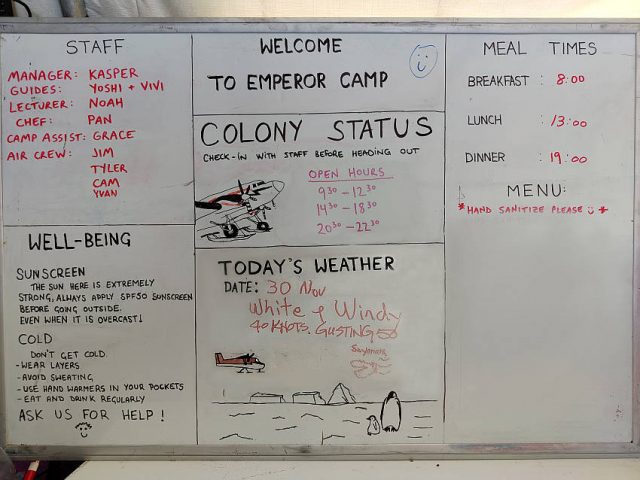 STAFF
MANAGER: KASPER
GUIDES: YOSHI + VIVI
LECTURER: NOAH
CHEF: PAN
CAMP ASSIST: GRACE
AIR CREW: JIM
TYLER
CAM
YVAN
WELL-BEING
SUNSCREEN
THE SUN HERE IS EXTREMELY
STRONG, ALWAYS APPLY SPF50 SUNSCREEN
BEFORE GOING OUTSIDE.
EVEN WHEN IT IS OVERCAST!
COLD
DON'T GET COLD.
- WEAR LAYERS
- AVOID SWEATING
- USE HAND WARMERS IN YOUR POCKETS
- EAT AND DRINK REGULARLY
ASK US FOR HELP!
WELCOME
TO EMPEROR CAMP
COLONY STATUS
CHECK-IN WITH STAFF BEFORE HEADING OUT
OPEN HOURS
9³⁰ - 12³⁰
14³⁰ - 18³⁰
20³⁰ - 22³⁰
TODAY'S WEATHER
DATE: 30 Nov
White & Windy
40 KNOTS. GUSTING 50
MEAL TIMES
BREAKFAST : 8:00
LUNCH : 13:00
DINNER : 19:00
MENU:
*HAND SANITIZE PLEASE *